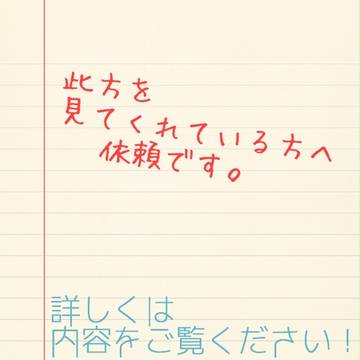 此方を
見てくれている方へ
依頼です。
詳しくは
内容をご覧ください！